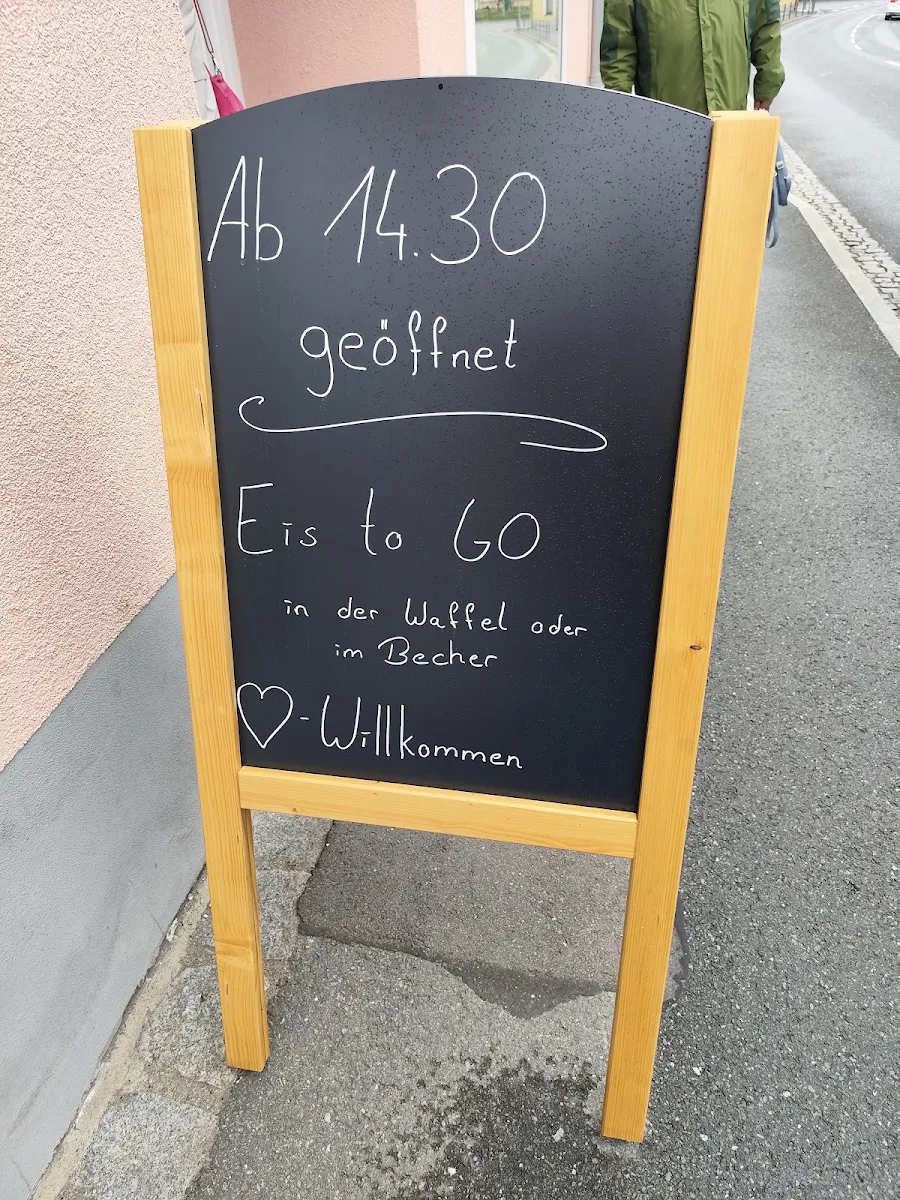 Ab 14.30
geöffnet
Eis to GO
in der Waffel oder
im Becher
♡-Willkommen